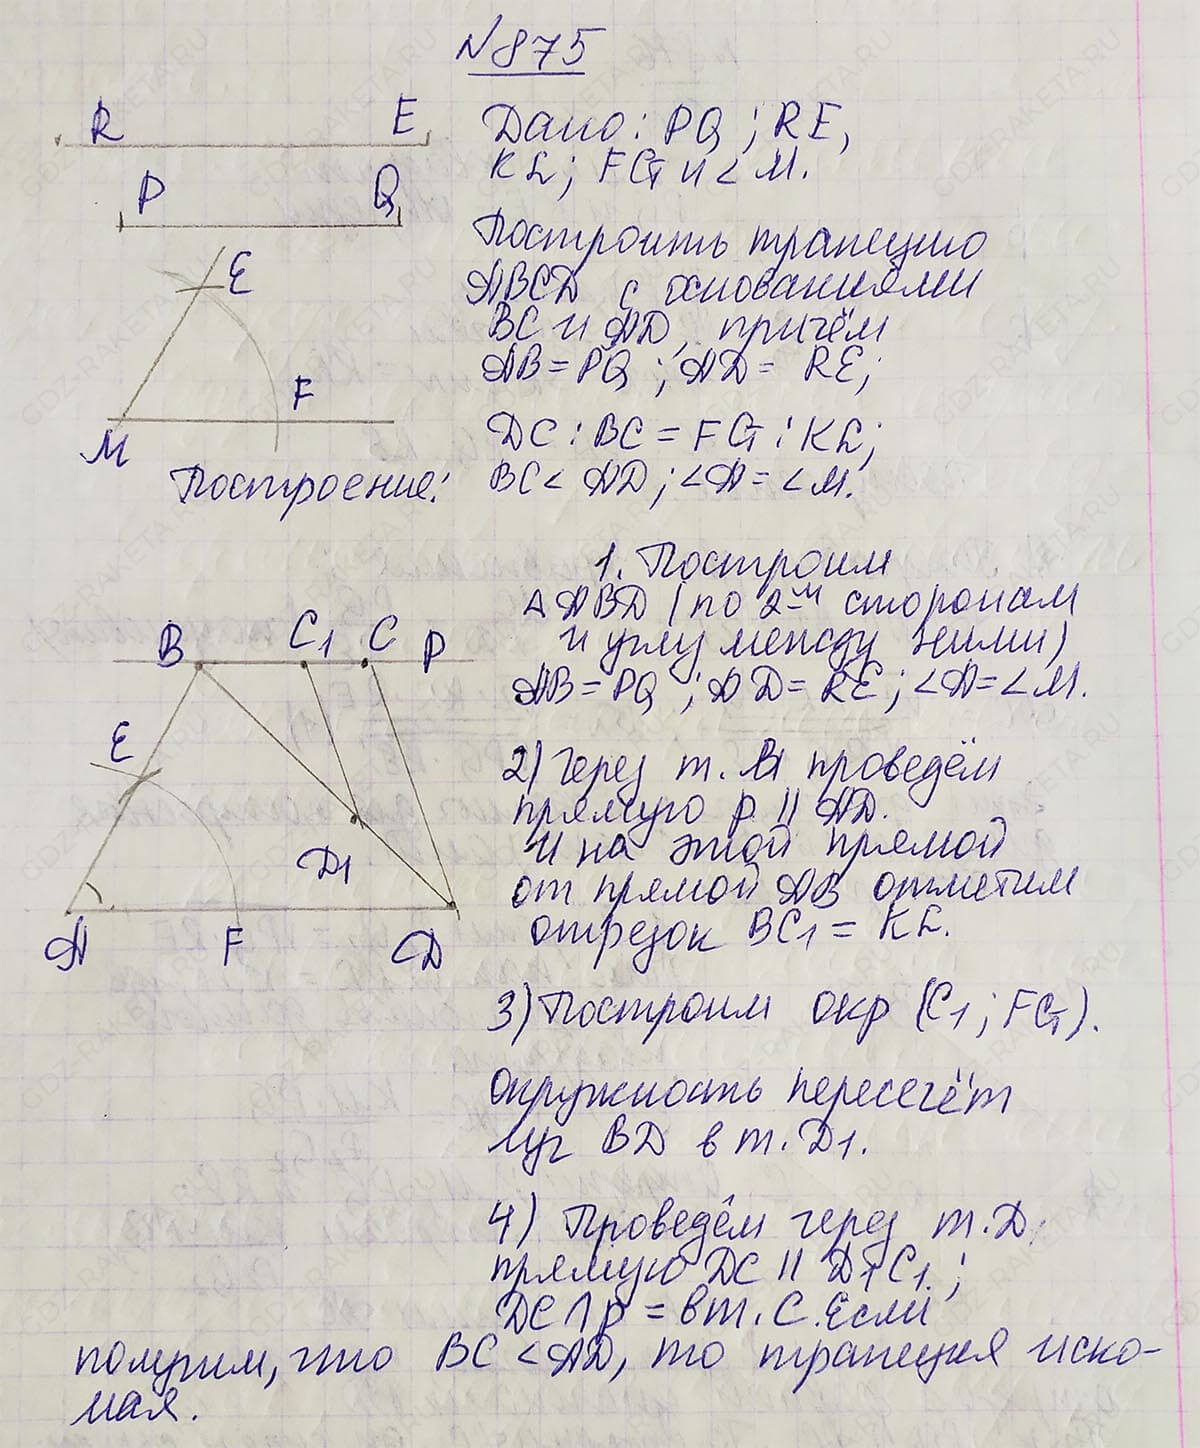 №875
R E
P Q
Дано: PQ; RE,
KL; FG и ∠M.
Построить трапецию
ABCD с основаниями
BC и AD, причём
AB = PQ; AD = RE;
DC : BC = FG : KL;
BC < AD; ∠A = ∠M.
E
F
M
Построение:
1. Построим
△ABD (по 2-м сторонам
и углу между ними)
AB = PQ; AD = RE; ∠A = ∠M.
B C1 C P
E
D1
A F D
2) Через т. B проведём
прямую p || AD.
и на этой прямой
от прямой AB отметим
отрезок BC1 = KL.
3) Построим окр (C1; FG).
окружность пересечёт
луч BD в т. D1.
4) Проведём через т. D
прямую DC || D1C1;
DC ∩ p = в т. C. Если
получим, что BC < AD, то трапеция иско-
мая.